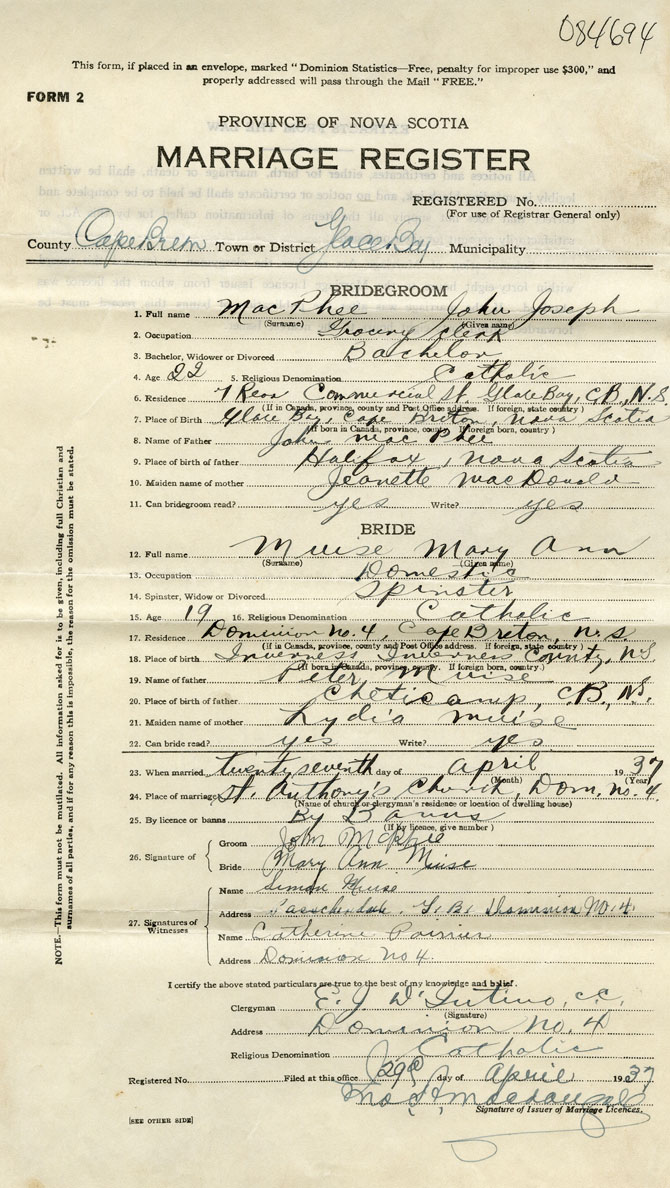 084694
This form, if placed in an envelope, marked "Dominion Statistics—Free, penalty for improper use $300," and
properly addressed will pass through the Mail "FREE."
FORM 2
PROVINCE OF NOVA SCOTIA
MARRIAGE REGISTER
REGISTERED No.
(For use of Registrar General only)
County Cape Breton Town or District Glace Bay Municipality
BRIDEGROOM
1. Full name MacPhee John Joseph
(Surname) (Given name)
2. Occupation Grocery Clerk
3. Bachelor, Widower or Divorced Bachelor
4. Age 22 5. Religious Denomination Catholic
6. Residence 7 Rear Commercial St. Glace Bay, C.B., N.S.
(If in Canada, province, county and Post Office address. If foreign, state country)
7. Place of Birth Glace Bay, Cape Breton, Nova Scotia
(If born in Canada, province, county. If foreign born, country)
8. Name of Father John MacPhee
9. Place of birth of father Halifax, Nova Scotia
10. Maiden name of mother Jeanette MacDonald
11. Can bridegroom read? yes Write? yes
BRIDE
12. Full name Muise Mary Ann
(Surname) (Given name)
13. Occupation Domestic
14. Spinster, Widow or Divorced Spinster
15. Age 19 16. Religious Denomination Catholic
17. Residence Dominion No. 4, Cape Breton, N.S
(If in Canada, province, county and Post Office address. If foreign, state country)
18. Place of birth Inverness Inverness County, N.S.
(If born in Canada, province, county. If foreign born, country)
19. Name of father Peter Muise
20. Place of birth of father Cheticamp, C.B., N.S.
21. Maiden name of mother Lydia Muise
22. Can bride read? yes Write? yes
23. When married twenty seventh day of April 1937
(Month) (Year)
24. Place of marriage St. Anthony's Church, Dom. No. 4
(Name of church or clergyman's residence or location of dwelling house)
25. By licence or banns By Banns
(If by licence, give number)
26. Signature of
Groom John McPhee
Bride Mary Ann Muise
27. Signatures of Witnesses
Name Simon Muise
Address Passchendale, G.B. Dominion No. 4
Name Catherine Poirrier
Address Dominion No 4
I certify the above stated particulars are true to the best of my knowledge and belief.
Clergyman E. J. D'Intino, c.c.
(Signature)
Address Dominion No. 4
Religious Denomination Catholic
Registered No. Filed at this office 29 day of April 1937
Signature of Issuer of Marriage Licences.
[SEE OTHER SIDE]
NOTE.—This form must not be mutilated. All information asked for is to be given, including full Christian and
surnames of all parties, and if for any reason this is impossible, the reason for the omission must be stated.